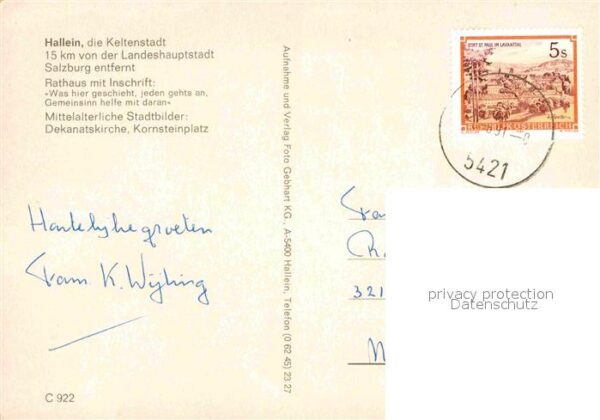 Hallein, die Keltenstadt
15 km von der Landeshauptstadt
Salzburg entfernt
Rathaus mit Inschrift:
»Was hier geschieht, jeden gehts an,
Gemeinsinn helfe mit daran«
Mittelalterliche Stadtbilder:
Dekanatskirche, Kornsteinplatz
Hartelijke groeten
Fam. K. Wijling
C 922
Aufnahme und Verlag Foto Gebhart KG, A-5400 Hallein, Telefon (0 62 45) 23 27
STIFT ST. PAUL IM LAVANTTAL
5s
REPUBLIK ÖSTERREICH
5421
Fam
321
privacy protection
Datenschutz